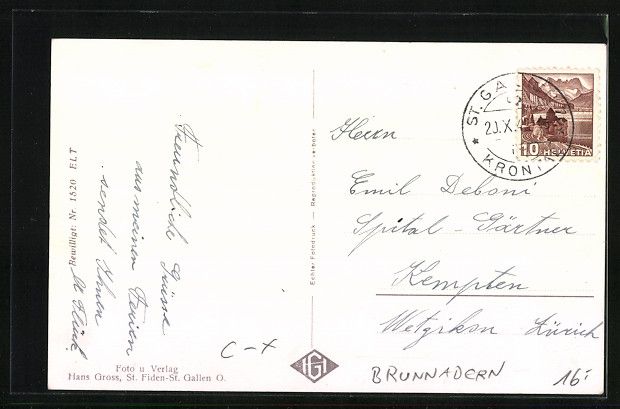 Freundliche Grüsse
aus meinen Ferien
sendet Ihnen
Bewilligt: Nr 1520 ELT
Echter Fotodruck — Reproduktion verboten
Foto u Verlag
Hans Gross, St. Fiden-St. Gallen O.
HGH
C-X
Herrn
Emil Deboni
Spital-Gärtner
Kempten
Wetzikon Zürich
BRUNNADERN
16:
ST. GA
KRON
10 HELVETIA